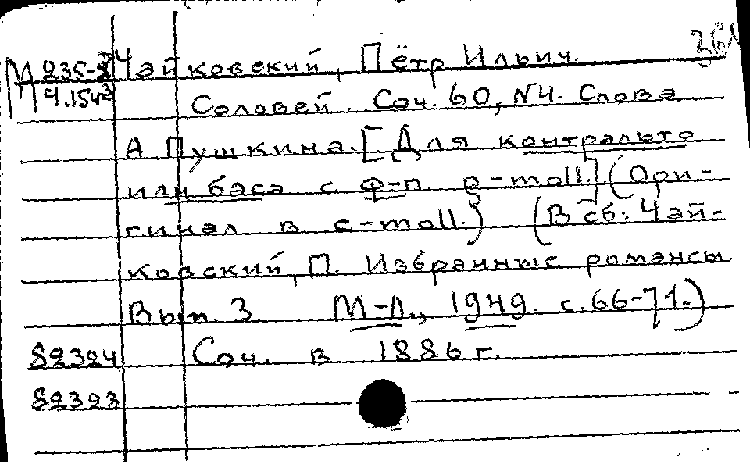 М 235-3 Чайковский, Пётр Ильич.
Ч.154 Соловей. Соч. 60, №4. Слова
А Пушкина. [Для контральто
или баса с ф-п. g-moll.] (Ори-
гинал в c-moll.) (В сб: Чай-
ковский, П. Избранные романсы
Вып. 3 М-Л., 1949. с. 66-71.)
82324 Соч. в 1886 г.
82323